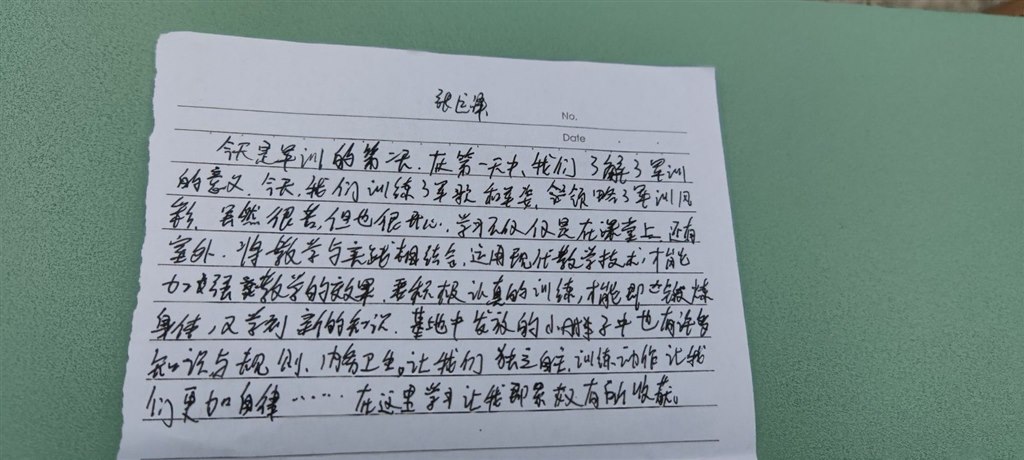 张巨泽
No.
Date
今天是军训的第二天.在第一天中,我们了解了军训
的意义.今天,我们训练了军歌和军姿,领略了军训风
彩.虽然很苦,但也很开心.学习不仅仅是在课堂上,还有
室外.将教学与实践相结合,运用现代教学技术,才能
加强教学的效果.要积极认真的训练,才能即锻炼
身体,又学到新的知识.基地中发放的小册子中也有许多
知识与规则、内务卫生。让我们独立自主,训练动作让我
们更加自律……在这里学习让我即累又有所收获。